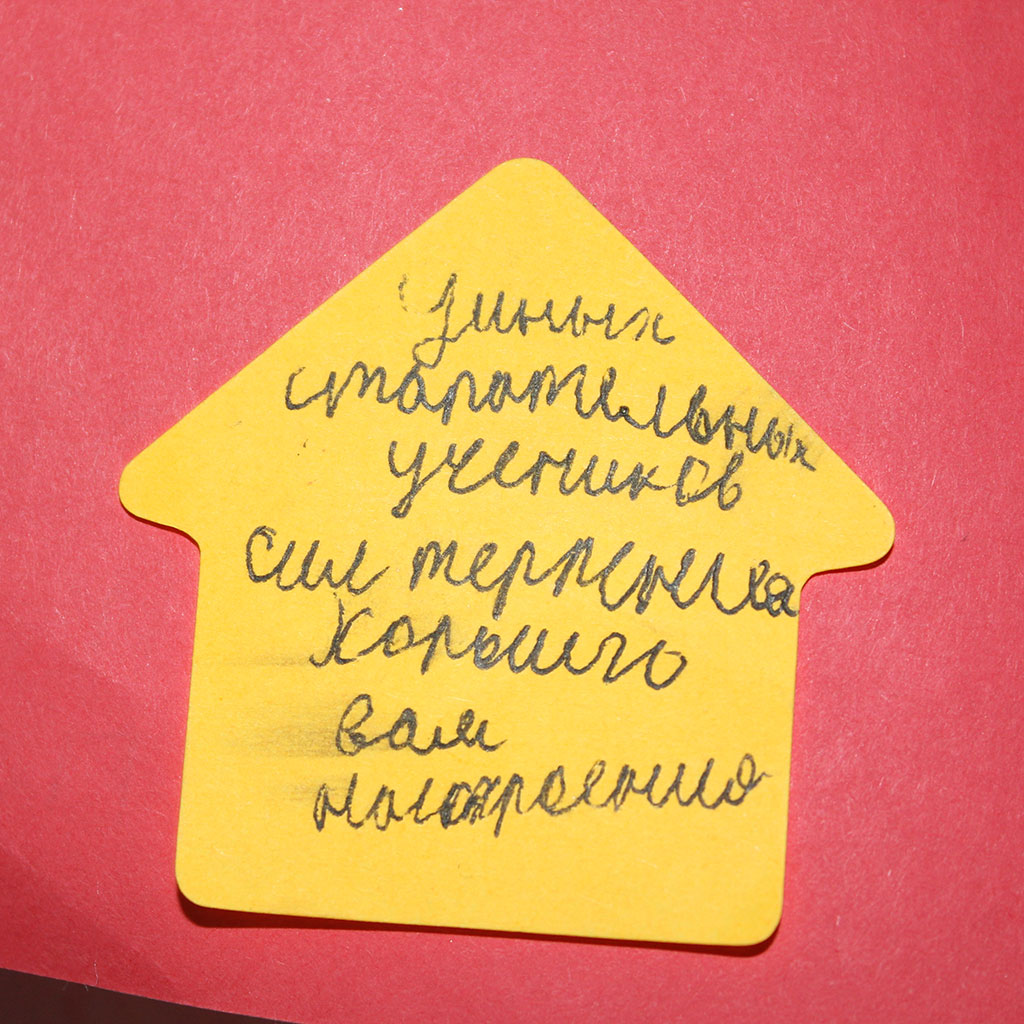 Умных
старательных
учеников
Сил терпения
Хорошего
вам
настроения